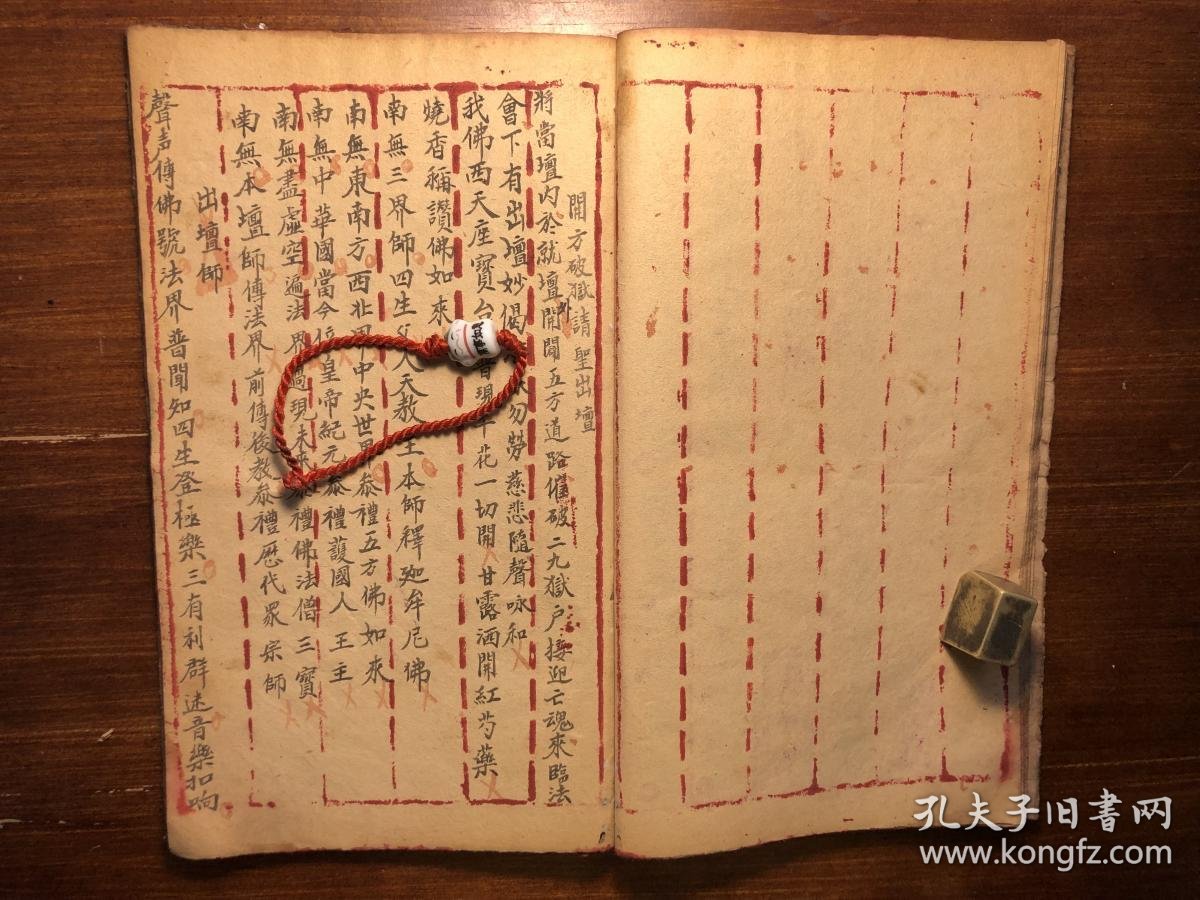 開方破獄請聖出壇
將當壇內於就壇外開開五方道路催破二九獄户接迎亡魂來臨法
會下有出壇妙偈 勿勞慈悲隨聲咏和
我佛西天座寳台 現 花一切開甘露洒開紅芍藥
燒香稱讃佛如來
南無三界師四生父人天教主本師釋迦牟尼佛
南無東南方西北 中央世界叅禮五方佛如來
南無中華國當今 皇帝紀元叅禮護國人王主
南無盡虛空遍法界過現未來叅禮佛法僧三寳
南無本壇師傳法界前傳後教叅禮歷代眾宗師
出壇師
聲声傳佛號法界普聞知四生登極樂三有利群迷音樂扣响
孔夫子旧書网
www.kongfz.com